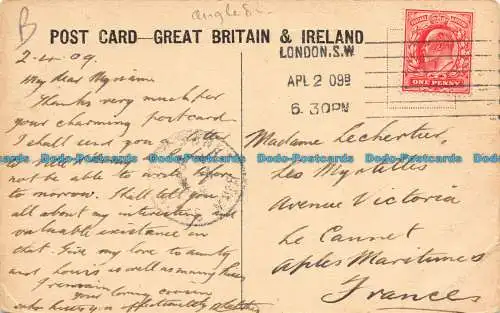 B
angle
POST CARD—GREAT BRITAIN & IRELAND
LONDON.S.W
APL 2 09
6.30PM
ONE PENNY
2-4-09
My dear Myriam
Thanks very much for
your charming postcard
I shall send you a letter
not be able to write before
to morrow. Shall tell you
all about my interesting and
valuable existence in
Give my love to aunty
and yours as well as many kisses
I remain
your loving cousin
who kisses you affectionately
Madame Lechertier,
Les Myrtilles
Avenue Victoria
Le Cannet
Alpes Maritimes
France
Dodo-Postcards Dodo-Postcards Dodo-Postcards Dodo-Postcards Dodo-Postcards
Dodo-Postcards Dodo-Postcards Dodo-Postcards Dodo-Postcards Dodo-Postcards